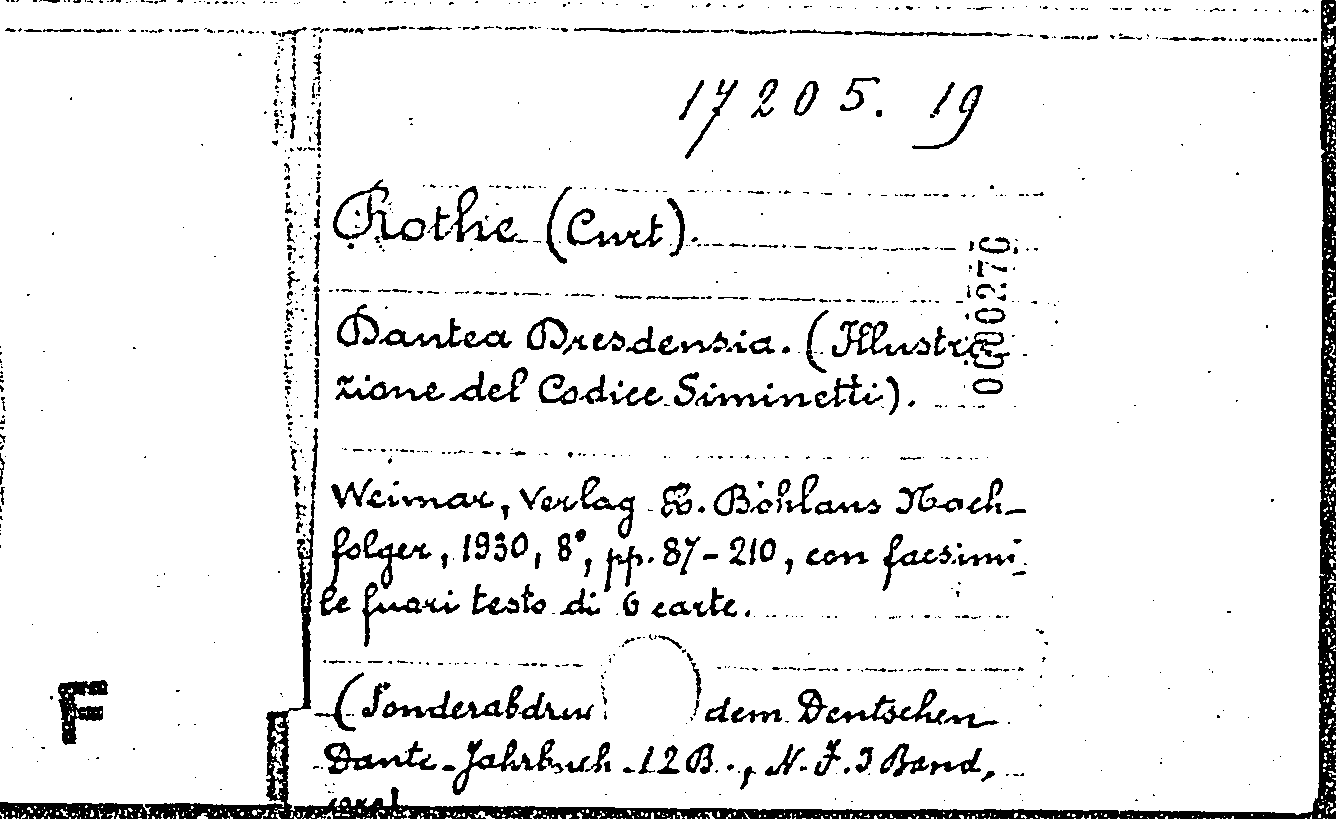 17205. 19
Rothe (Curt).
0000270
Dantea Dresdensia. (Illustra
zione del Codice Siminetti).
Weimar, Verlag H. Böhlaus Nach-
folger, 1930, 8°, pp. 87-210, con facsimi-
le fuari testo di 6 carte.
(Sonderabdru dem Deutschen
Dante-Jahrbuch. 12 B., N. F. 3 Band,
F